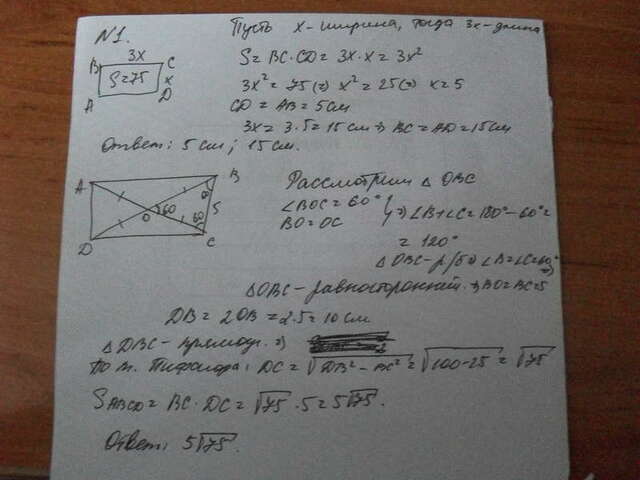 N1.
Пусть x - ширина, тогда 3x - длина
3x
B C
S=75 x
A D
S = BC · CD = 3x · x = 3x²
3x² = 75 (=) x² = 25 (=) x = 5
CD = AB = 5 см
3x = 3·5 = 15 см ⇒ BC = AD = 15 см
Ответ: 5 см; 15 см.
A B
60
O 60 60 5
D C
Рассмотрим △ OBC
∠BOC = 60°
BO = OC
⇒ ∠B + ∠C = 180° - 60° =
= 120°
△ OBC - р/б ⇒ ∠B = ∠C = 60° ⇒
△OBC - равносторонний. ⇒ BO = BC = 5
DB = 2OB = 2·5 = 10 см
△ DBC - прямоуг. ⇒
По т. Пифагора: DC = √DB² - BC² = √100-25 = √75
SABCD = BC · DC = √75 · 5 = 5√75.
Ответ: 5√75.